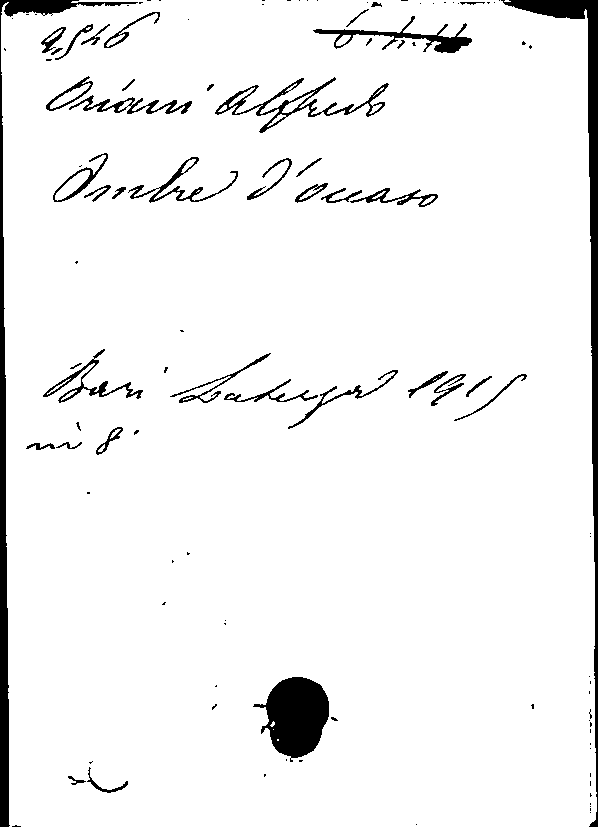 9546
Oriani Alfredo
Ombre d'occaso
Bari Laterza 1915
in 8°